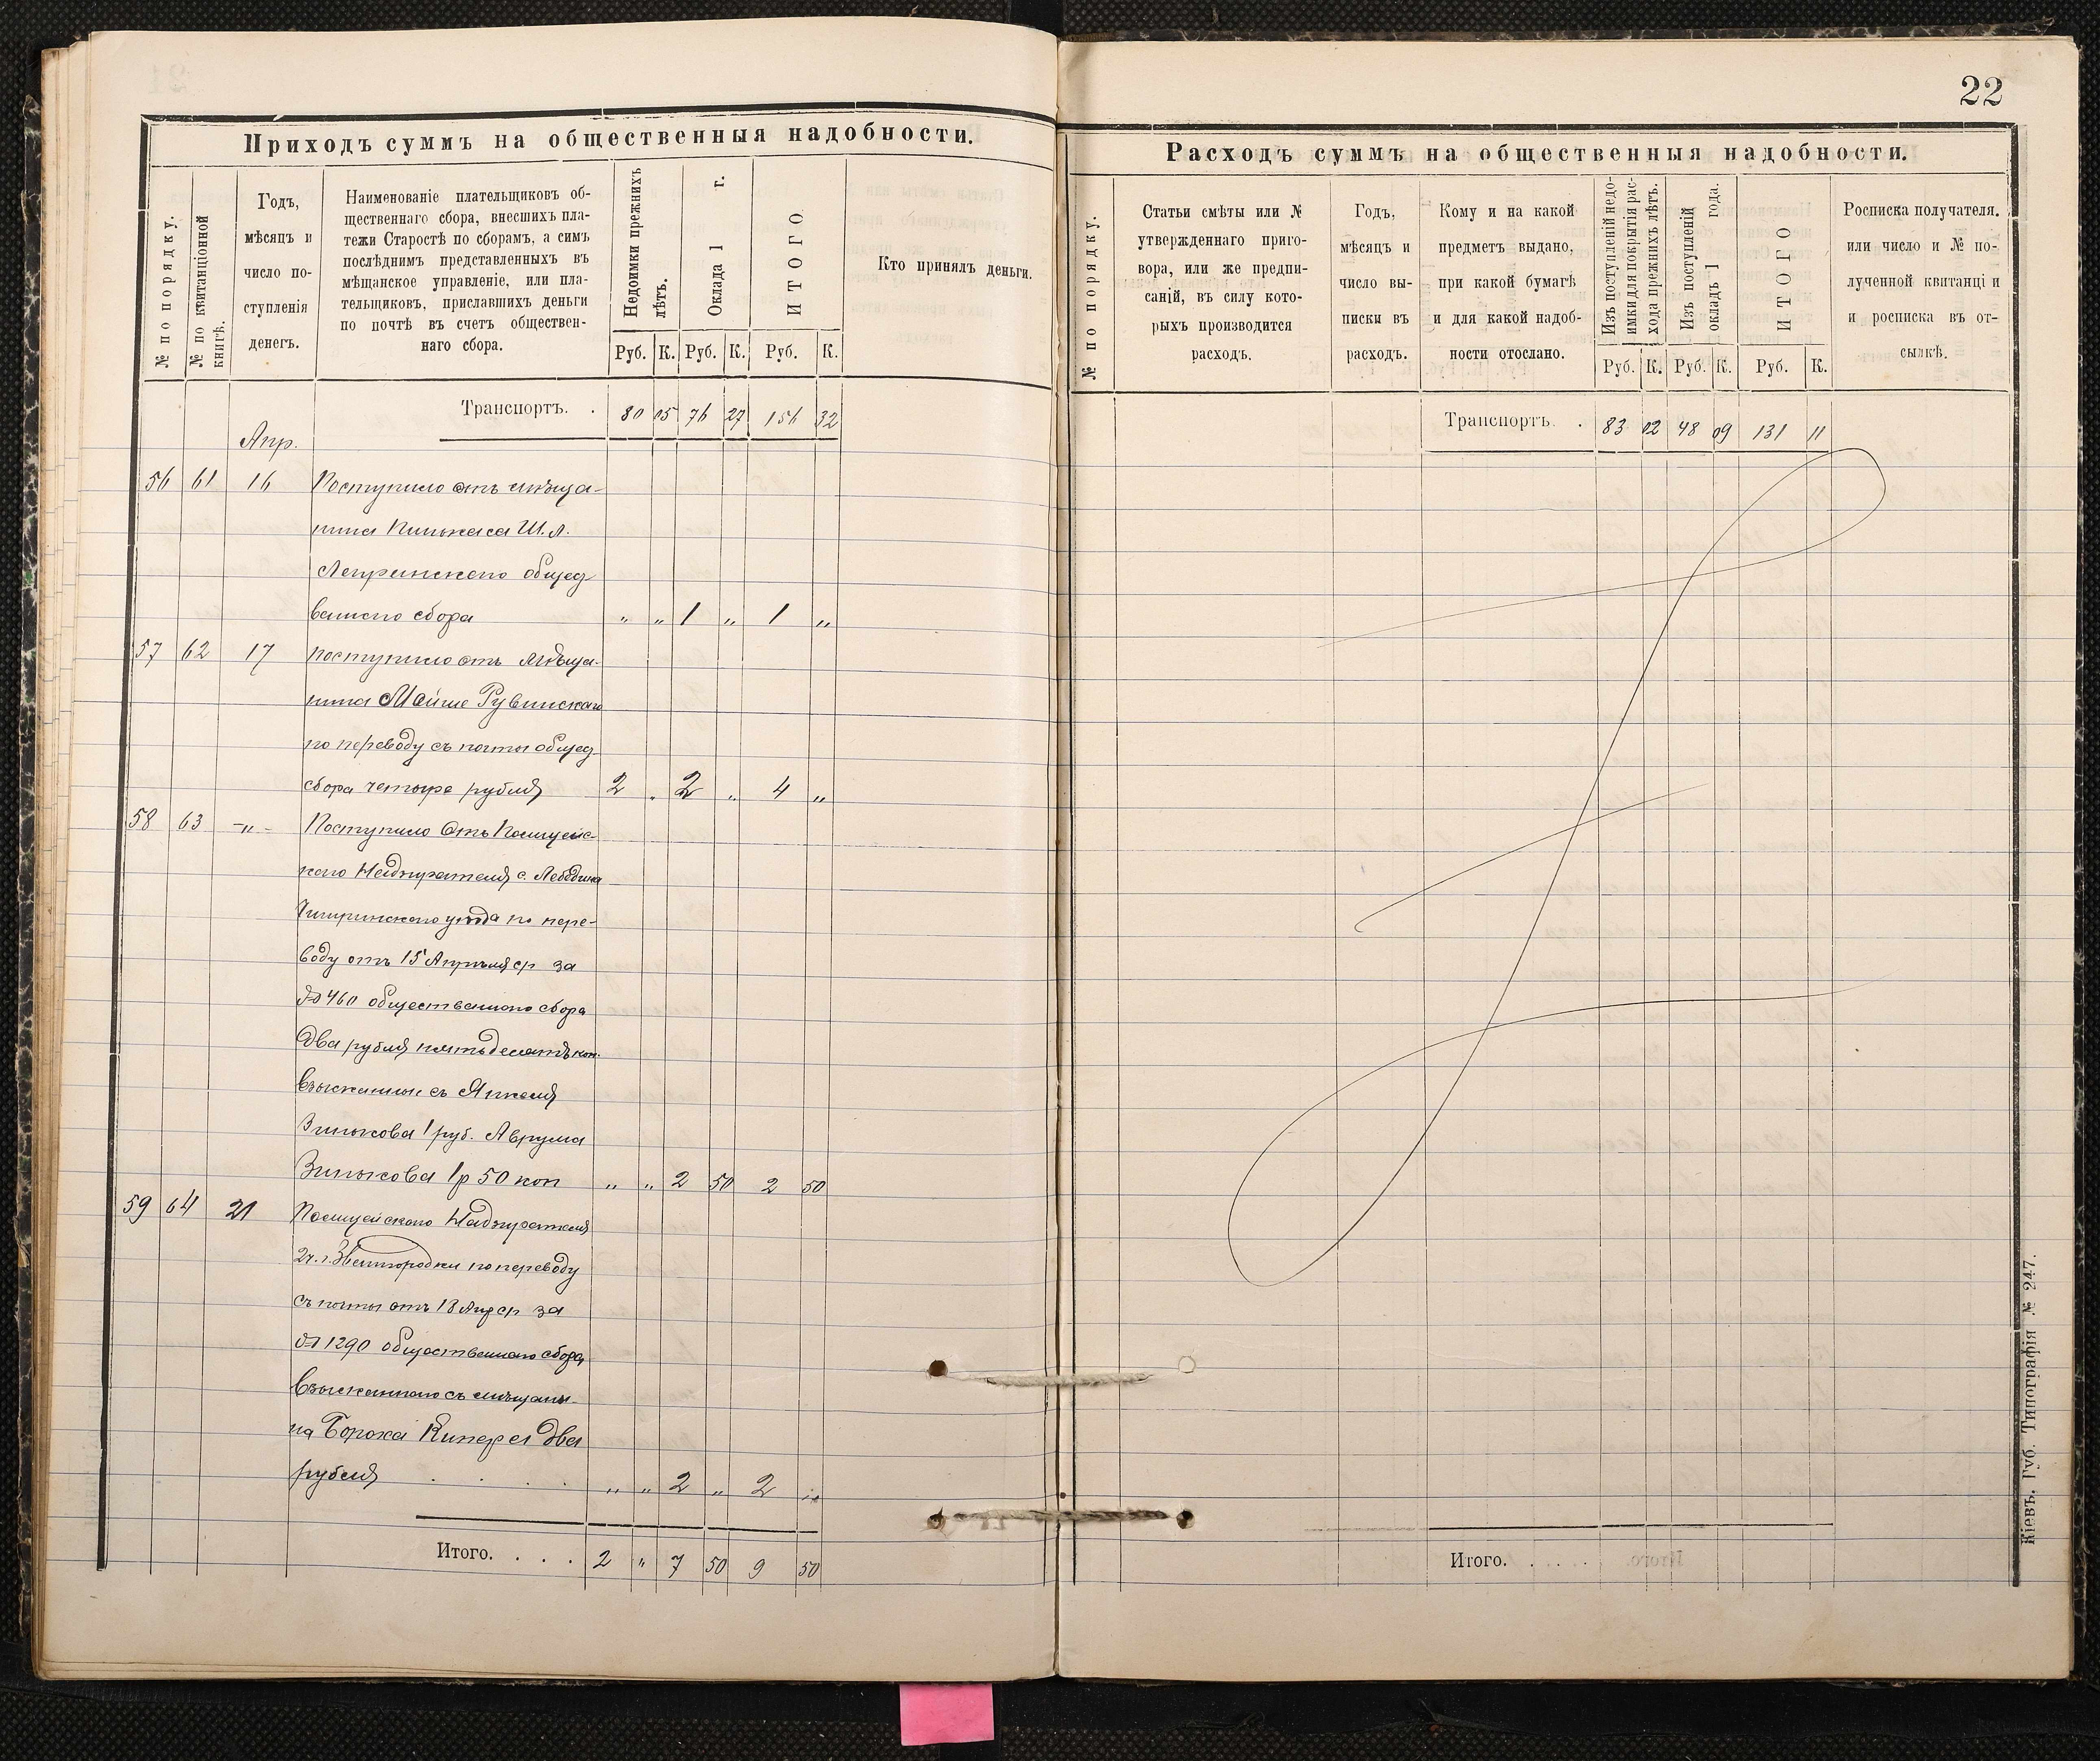 Приходъ суммъ на общественныя надобности.
№ по порядку.
№ по квитанціонной книгѣ.
Годъ,
мѣсяцъ и
число по-
ступленія
денегъ.
Наименованіе плательщиковъ об-
щественнаго сбора, внесшихъ пла-
тежи Старостѣ по сборамъ, а симъ
послѣднимъ представленныхъ въ
мѣщанское управленіе, или пла-
тельщиковъ, приславшихъ деньги
по почтѣ въ счетъ обществен-
наго сбора.
Недоимки прежнихъ
лѣтъ.
Оклада 1 г.
ИТОГО
Кто принялъ деньги.
Руб. К. Руб. К. Руб. К.
Транспортъ. . 80 05 76 27 156 32
Апр.
56 61 16 Поступило отъ мѣща-
нина Пинькаса Ш. Л.
общес
веннаго сбора " " 1 " 1 "
57 62 17 поступило отъ мѣща-
нина Мойше Рувинскаго
по переводу съ почты общес
сбора четыре рубля 2 " 2 " 4 "
58 63 -"- Поступило Отъ Полицейс-
каго Надзирателя с. Лебедина
Чигиринскаго уѣзда по пере-
воду отъ 15 Апрѣля ср за
№ 460 общественнаго сбора
два рубля пятьдесятъ коп.
взысканныя съ Янкеля
Зинькова 1 руб. Аврума
Зинькова 1 р 50 коп " " 2 50 2 50
59 64 21 Полицейскаго Надзирателя
2 ч. г. Звенигородки по переводу
съ почты отъ 18 Апр ср за
№ 1290 общественнаго сбора
взысканнаго съ мѣщани-
на Бороха Кипера два
рубля . . . . " " 2 " 2 "
Итого. . . . 2 " 7 50 9 50
22
Расходъ суммъ на общественныя надобности.
№ по порядку.
Статьи смѣты или №
утвержденнаго приго-
вора, или же предпи-
саній, въ силу кото-
рыхъ производится
расходъ.
Годъ,
мѣсяцъ и
число вы-
писки въ
расходъ.
Кому и на какой
предметъ выдано,
при какой бумагѣ
и для какой надоб-
ности отослано.
Изъ поступленій недо-
имки для покрытія рас-
хода прежнихъ лѣтъ.
Изъ поступленій
окладъ 1 года.
ИТОГО
Росписка получателя.
или число и № по-
лученной квитанці и
и росписка въ от-
сылкѣ.
Руб. К. Руб. К. Руб. К.
Транспортъ. . 83 02 48 09 131 11
Итого. . . . .
Кіевъ. Губ. Типографія № 247.